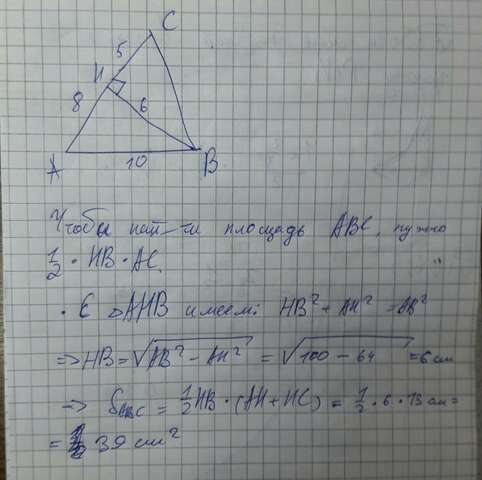 C
5
H
8
6
A
10
B
Чтобы найти площадь ABC, нужно
1/2 · HB · AC.
· ΔAHB имеем: HB² + AH² = AB²
=> HB = √(AB² - AH²) = √(100 - 64) = 6 см
=> = 1/2 HB · (AH + HC) = 1/2 · 6 · 13 см =
= 39 см²